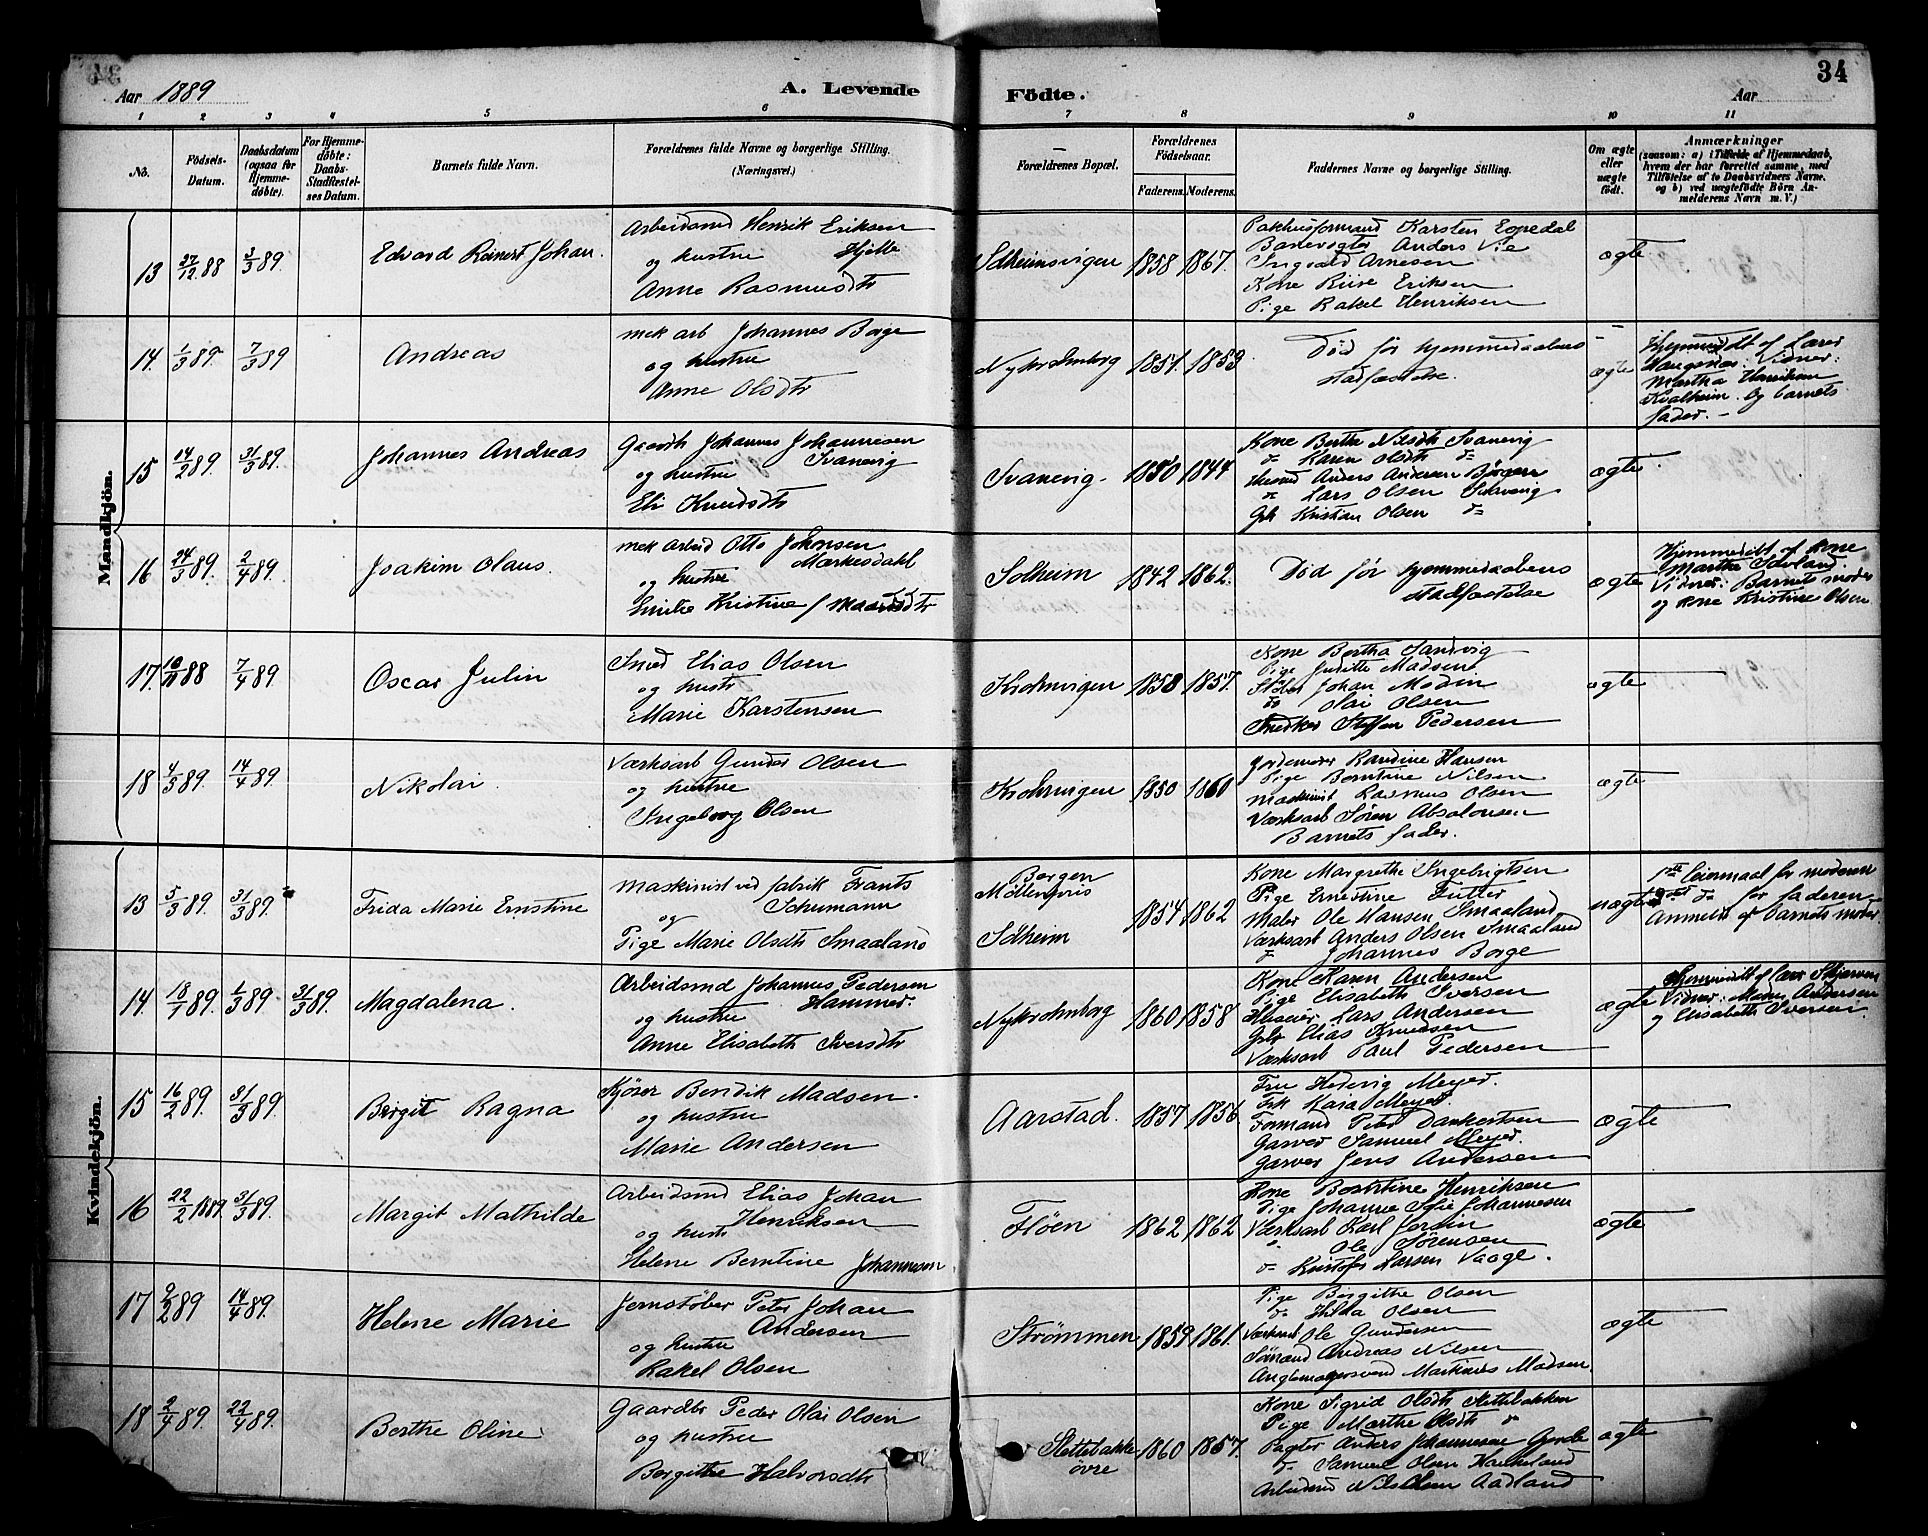 34
Aar 1889
A. Levende Fødte.
Aar
1 2 3 4 5 6 7 8 9 10 11
No.
Fødsels-Datum.
Daabsdatum (ogsaa for Hjemme-døbte).
For Hjemme-døbte: Daabs-Stadfæstel-ses Datum.
Barnets fulde Navn.
Forældrenes fulde Navne og borgerlige Stilling. (Næringsvei.)
Forældrenes Bopæl.
Forældrenes Fødselsaar.
Faderens. Moderens.
Faddernes Navne og borgerlige Stilling.
Om ægte eller uægte født.
Anmærkninger (saasom: a) i Tilfælde af Hjemmedaab, hvem der har forrettet samme, med Tilføielse af to Daabsvidners Navne, og b) ved uægtefødte Børn Anmelderens Navn m. V.)
Mandkjön.
13 27/12 88 3/3 89. Edvard Reinert Johan.
Arbeidsmd Henrik Eriksen
Hjelle
og hustru
Anne Rasmusdtr
Solheimsvigen 1858 1867.
Pakhusformand Karsten Eopedal
Banevogter Anders Vie
Ingvald Arnesen
Kone Eriksen
Pige Rakel Henriksen
ægte
14. 1/3 89. 7/3 89 Andreas
mek arb Johannes Borge
og hustru
Anne Olsdtr
Nykrohnborg 1851. 1853
Død før hjemmedaabens
stadfæstelse.
ægte
Hjemmedøbt af Lærer
Vidner:
Martha Henriksen
Kvalheim. Og barnets
fader.
15 14/2 89. 31/3 89. Johannes Andreas
Gaardb Johannes Johannesen
Svanevig
og hustru
Eli Knudsdtr
Svanevig. 1850 1844
Kone Berthe Nilsdtr Svanevig
do Karen Olsdtr do
Husmd Anders Andersen
do Lars Olsen
Gbr Kristian Olsen do
ægte.
16 24/3 89. 2/4 89. Joakim Olaus.
mek Arbeid Otto Johnsen
Markusdahl
og hustru
Kristine
Solheim 1842 1862.
Død før hjemmedaabens
stadfæstelse
ægte
Hjemmedøbt af Kone
Martha
Vidner: Barnets moder
og Kone Kristine Olsen
17. 10/11 88 7/4 89. Oscar Julin
Smed Elias Olsen
og hustr
Marie Karstensen
Krohnvigen 1858 1857.
Kone Bertha Sandvig
Pige Juditte Madsen
Støber Johan Modin
do Olai Olsen
Snedker Steffen Pedersen
ægte
18 4/3 89. 14/4 89. Nikolai.
Værksarb Gunder Olsen
og hustru
Ingeborg Olsen
Krohnvigen 1850 1860
Jordemoder Randine Hansen
Pige Berntine Nilsen
Maskinist Rasmus Olsen
Værksarb Søren Absalonsen
Barnets fader.
ægte
Kvindekjön.
13 5/3 89. 31/3 89. Frida Marie Ernstine
Maskinist ved fabrik Frants
Schumann
og
Pige Marie Olsdtr Smaaland
Bergen
Möllenpris
Solheim
1854 1862
Kone Margrethe Ingebrigtsen
Pige Ernestine Futter
Maler Ole Hansen Smaaland
Værksarb Anders Olsen Smaaland
do Johannes Borge
uægte
1ste leiermaal for moderen
do for faderen
Anmeldt af Barnets moder
14. 18/1 89. 1/3 89 31/3 89. Magdalena.
Arbeidsmd Johannes Pedersen
Hammer.
og hustru
Anne Elisabeth Iversdtr
Nykrohnborg 1860 1858
Kone Karen Andersen
Pige Elisabeth Iversen
Huseier Lars Andersen
Gbr Elias Knudsen
Værksarb Paul Pedersen
ægte
Hjemmedøbt af Lærer Skjerven
Vidner: Andersen
og Elisabeth Iversen.
15 16/2 89. 31/3 89. Birgit Ragna
Kjører Bendik Madsen.
og hustru
Marie Andersen
Aarstad. 1857 1856.
Fru Hedevig Meyer.
Frk Kaia Meyer.
Formand Peter Dankertsen
Garver Samuel Meyer.
Garver Jens Andersen
ægte
16 22/2 1889. 31/3 89. Margit Mathilde
Arbeidsmd Elias Johan
Henriksen
og hustr
Helene Berntine Johannesen
Fløen 1862 1862
Kone Berntine Henriksen
Pige Johanne Sofie Johannesen
Værksarb Karl
do Ole Sørensen
do Kristofer Larsen Vaage.
ægte
17 2/2 89 14/4 89. Helene Marie
Jernstøber Peter Johan
Andersen
og hustru
Rakel Olsen
Strømmen 1859 1861.
Pige Birgithe Olsen
do Hilda Olsen
Værksarb Ole Gundersen
Sømand Andreas Nilsen
Martinus Madsen
ægte
18 2/4 89. 22/4 89. Berthe Oline
Gaardbr Peder Olai Olsen
og hustru
Bergithe Halvorsdtr
Slettebakke
øvre
1860 1857.
Kone Sigrid Olsdtr Slettebakken
Pige Marthe Olsdtr do
Pagter Anders Johannesen
do Samuel Olsen Haukeland
Arbeidsmd Nils Aadland
ægte